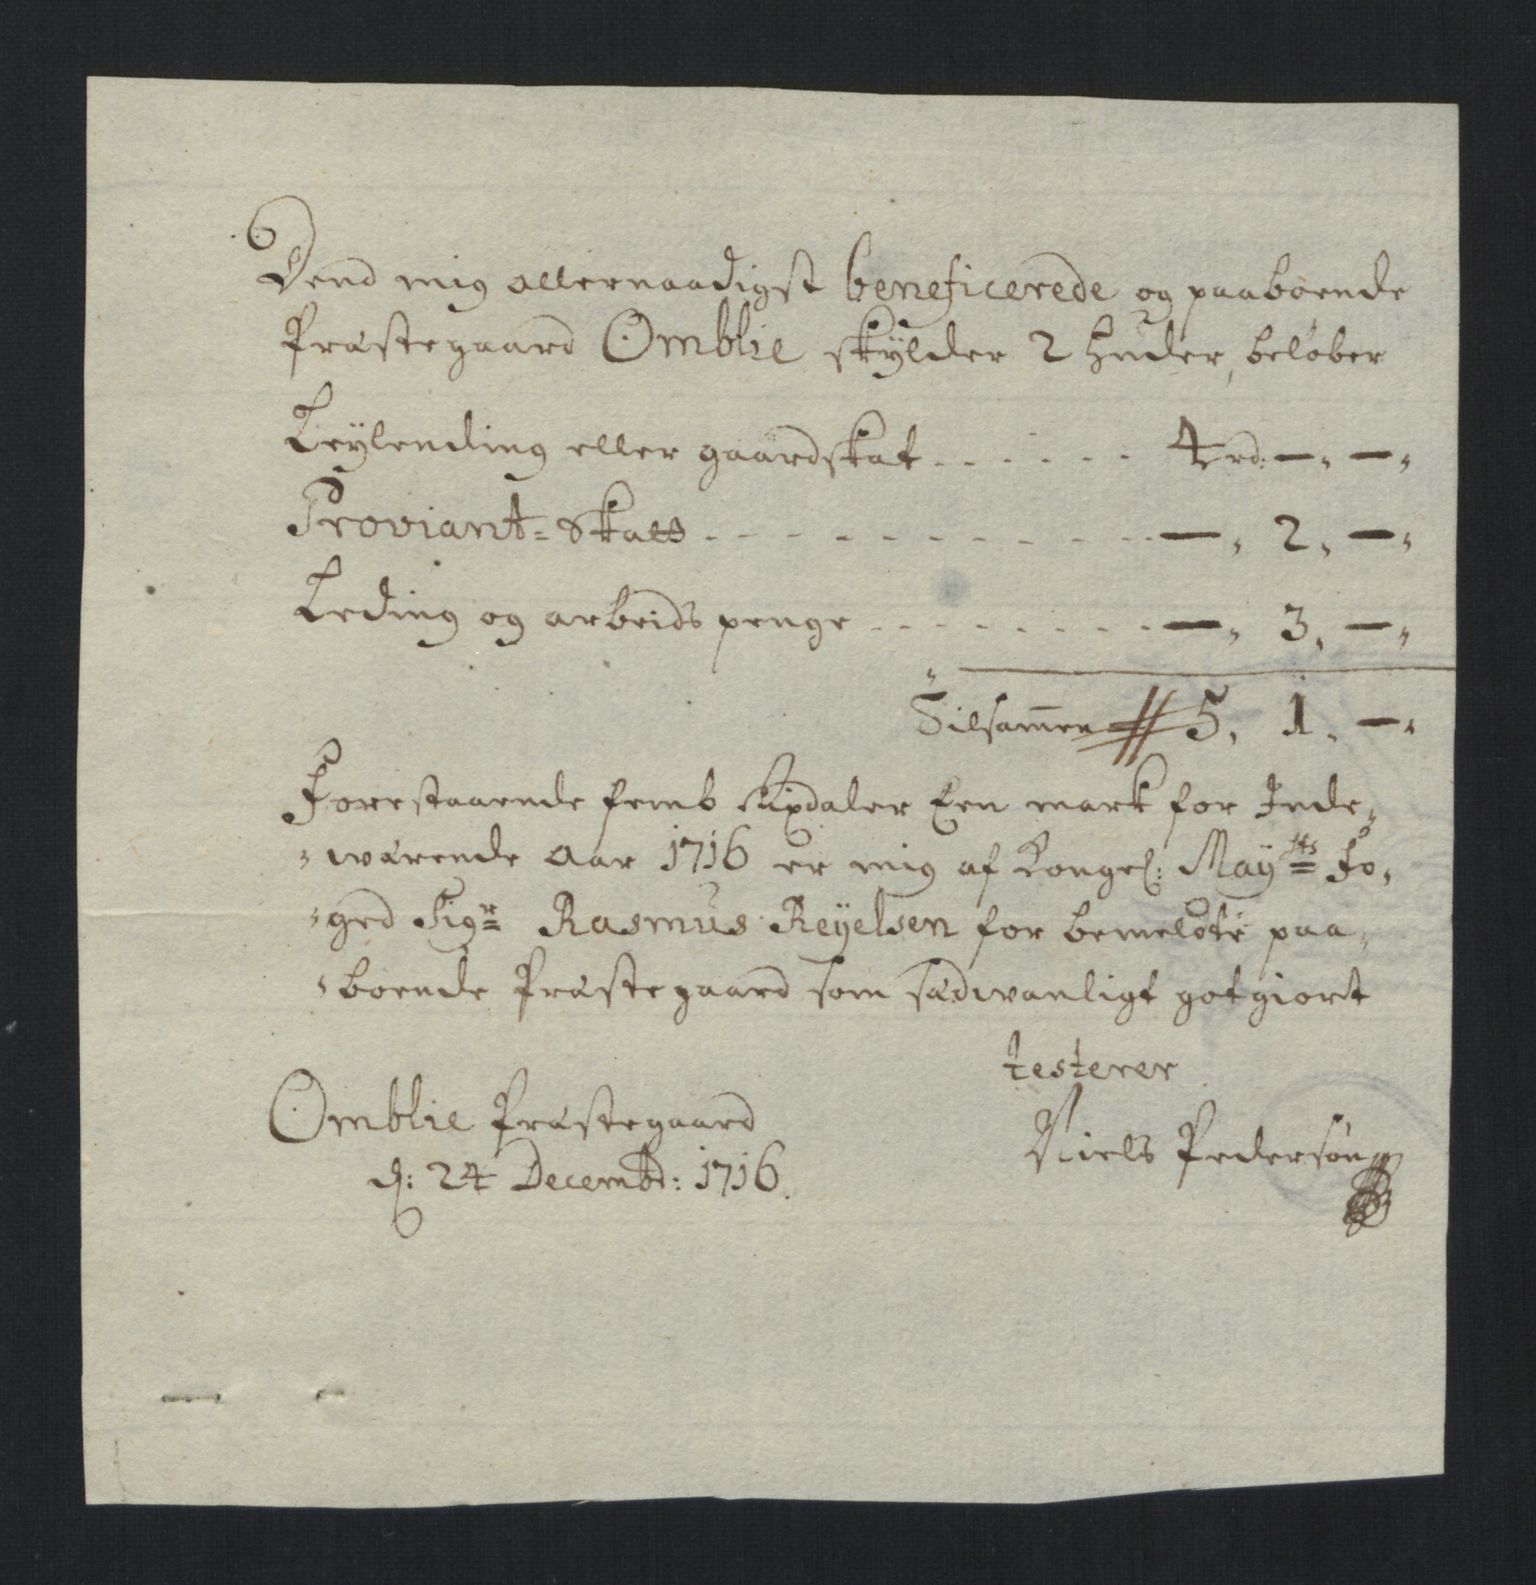 Dend mig allernaadigst beneficerede og paaboende
Præstegaard Omblie skylder 2 huder, beløber
Leylending eller gaardskat . . . . . . 4 rd: —, —,
Proviant= Skatt . . . . . . . . . . . . —, 2, —,
Leding og arbeids penge . . . . . . . . —, 3, —,
Tilsam̅en 5, 1, —,
Forestaaende femb Rixdaler Een mark for Inde,
, værende Aar 1716 er mig af Kongel: Mayᵗᵗˢ Fo,
, ged Sigʳ Rasmus Reyelsen for bemeldte paa,
, boende Præstegaard som sædvanligt godtgiort
testerer
Omblie Præstegaard
Niels Pedersøn
d: 24 Decembr: 1716.